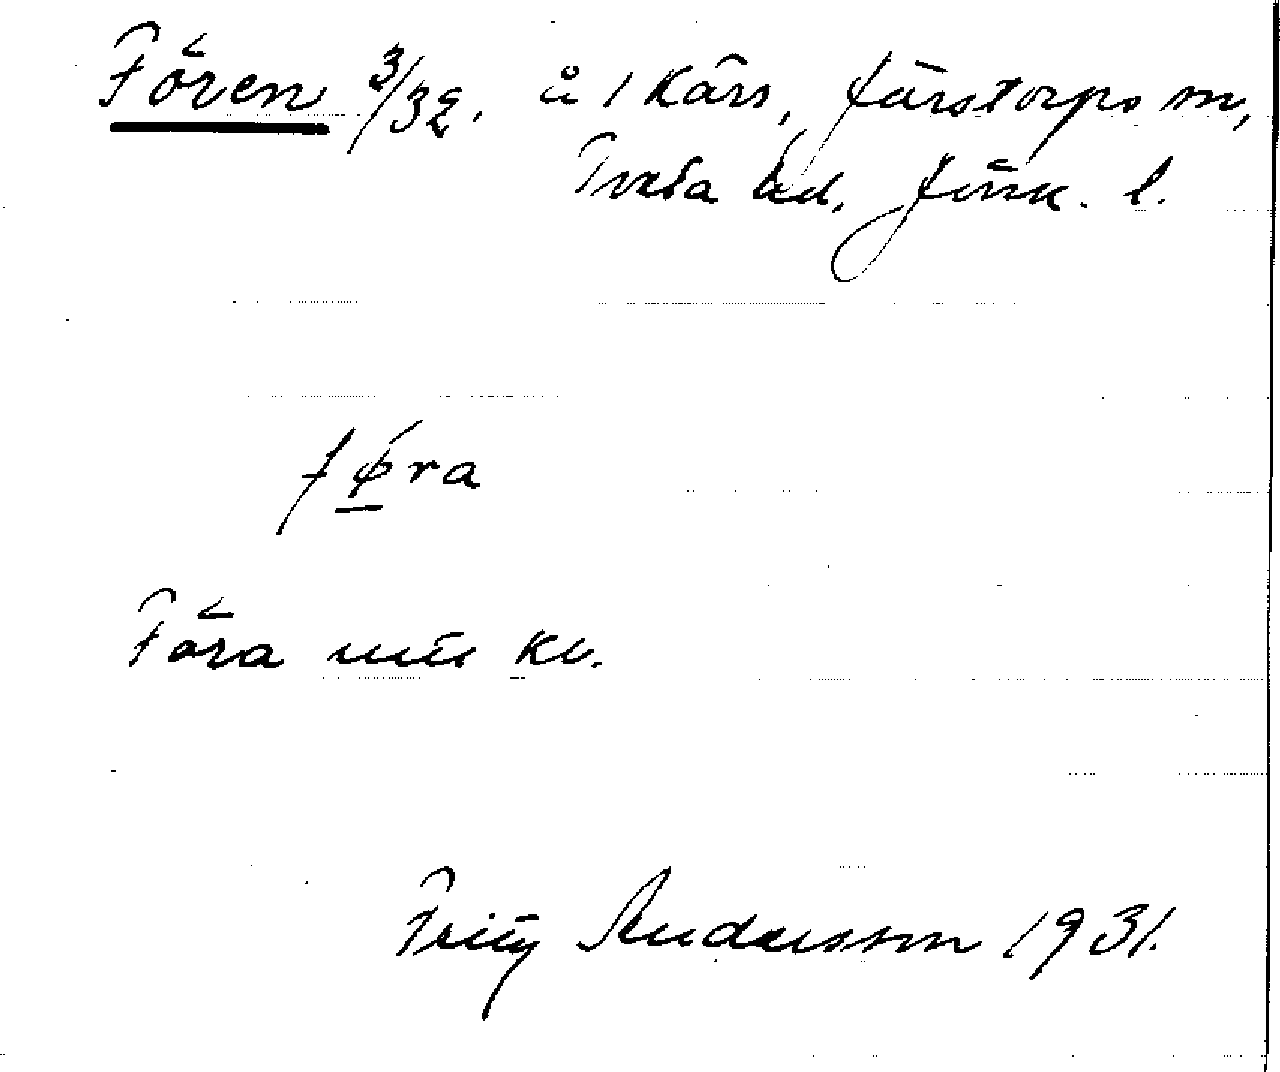 Fören 3/32. å i Kärs, Järstorps sn,
Tveta hd, Jönk. l.
fø̱ra
Föra utt. kv.
Fritz Andersson 1931.